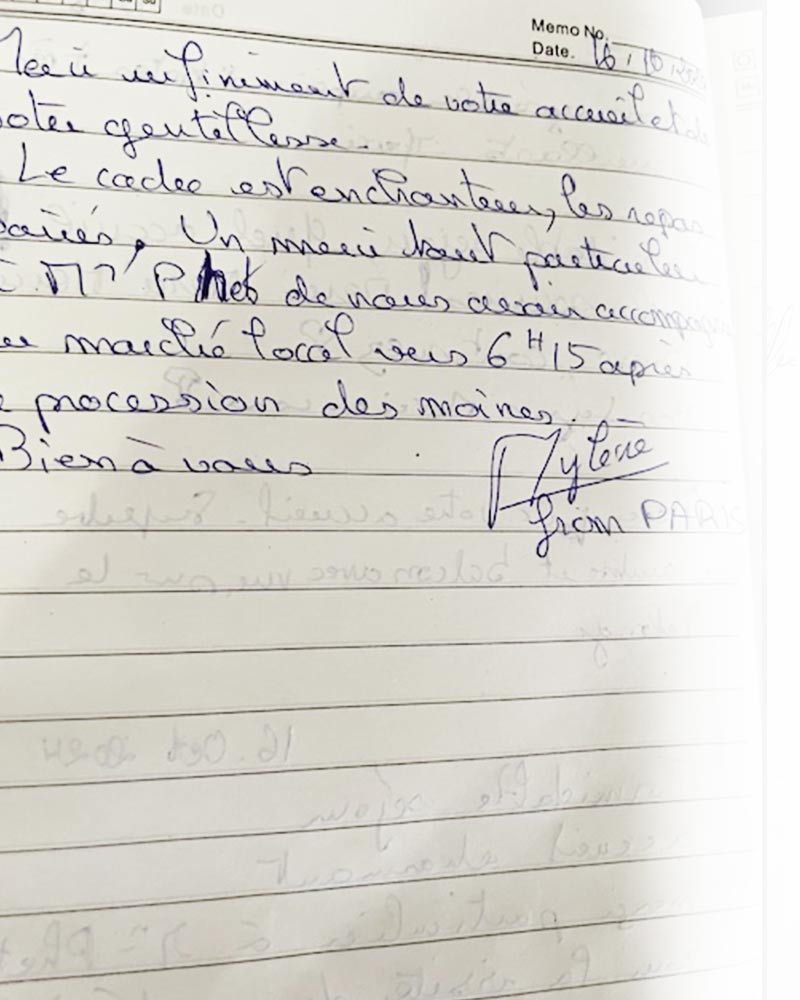 Memo No.
Date. 16/10/202
Merci infiniment de votre accueil et de
votre gentillesse.
Le cadre est enchanteur, les repas
variés. Un merci tout particulier
à Mr Phet de nous avoir accompagné
au marché local vers 6H15 après
procession des moines.
Bien à vous
Mylène
from PARIS
16. Oct 2024